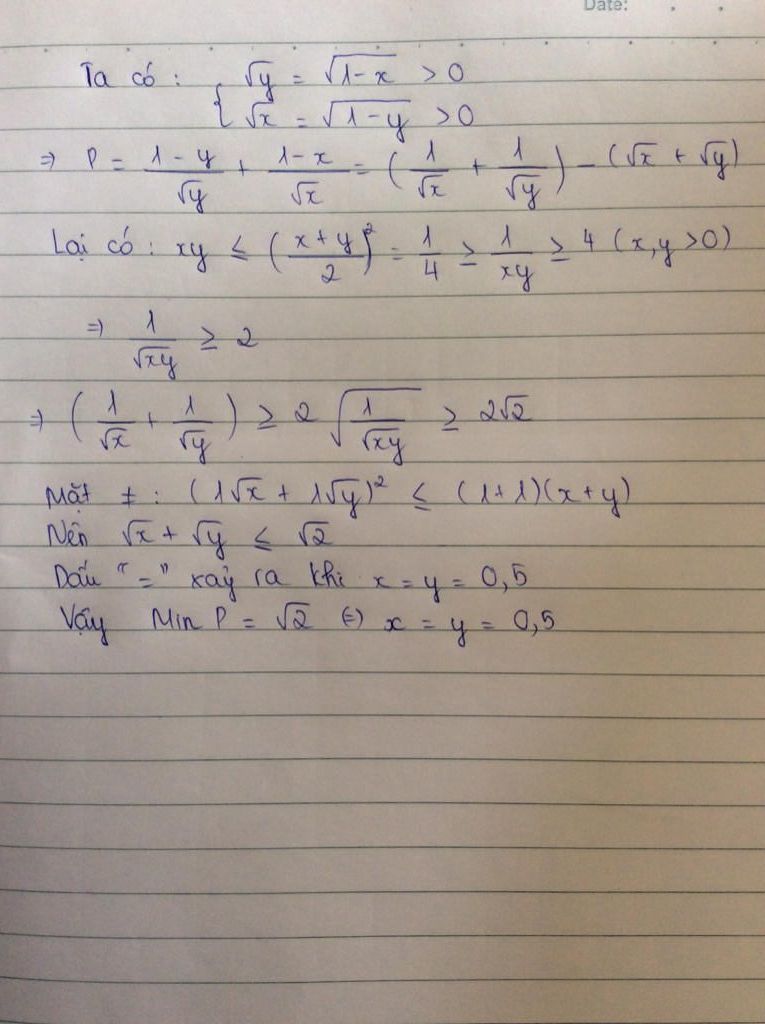 Date:
Ta có : { √y = √(1-x) > 0
√x = √(1-y) > 0
⇒ P = (1-y)/√y + (1-x)/√x = (1/√x + 1/√y) - (√x + √y)
Lại có : xy ≤ ((x+y)/2)² = 1/4 ≥ 1/xy ≥ 4 (x,y >0)
⇒ 1/√xy ≥ 2
⇒ (1/√x + 1/√y) ≥ 2 √(1/√xy) ≥ 2√2
Mặt ≠ : (1√x + 1√y)² ≤ (1+1)(x+y)
Nên √x + √y ≤ √2
Dấu "=" xảy ra khi x = y = 0,5
Vậy Min P = √2 ⇔ x = y = 0,5